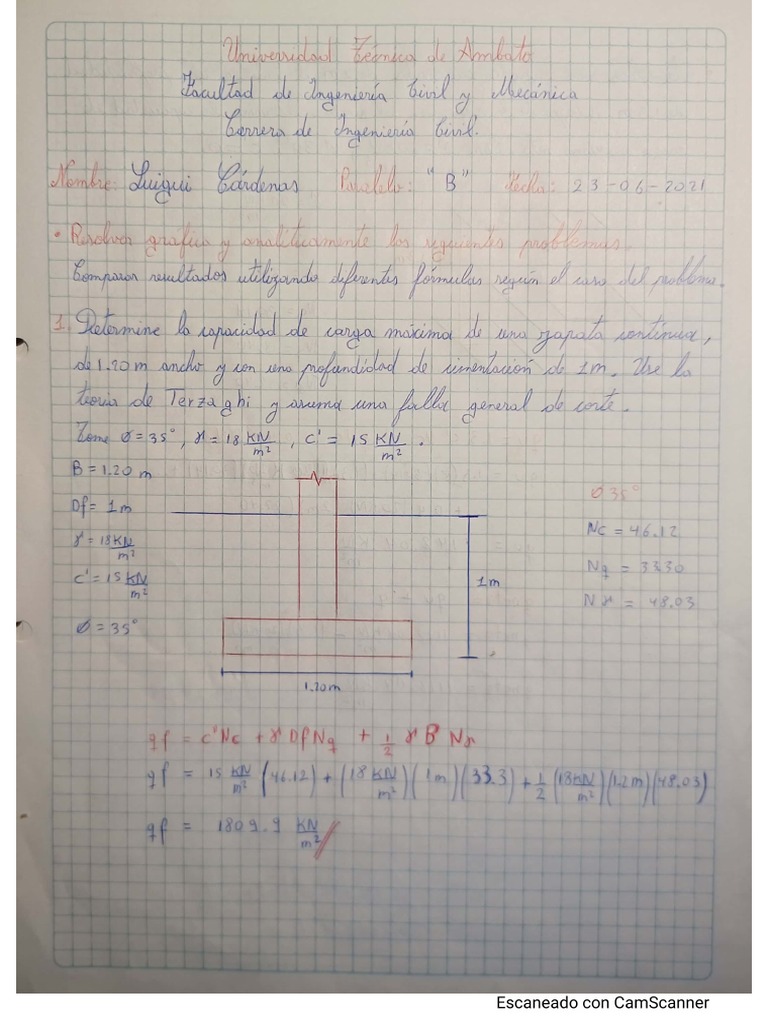 Universidad Técnica de Ambato
Facultad de Ingeniería Civil y Mecánica
Carrera de Ingeniería Civil.
Nombre: Luigui Cárdenas Paralelo: "B" Fecha: 23-06-2021
• Resolver grafica y analíticamente los siguientes problemas.
Comparar resultados utilizando diferentes fórmulas según el caso del problema.
1. Determine la capacidad de carga máxima de una zapata continua,
de 1.20 m ancho y con una profundidad de cimentación de 1m. Use la
teoria de Terzaghi y asuma una falla general de corte.
Tome Ø=35°, γ=18 KN/m², c'=15 KN/m².
B = 1.20 m
Df= 1m
γ=18KN/m²
c'=15 KN/m²
Ø=35°
1m
1.20m
Ø 35°
Nc = 46.12
Nq = 33.30
Nγ = 48.03
qf = c'Nc + γ Df Nq + 1/2 γ B Nγ
qf = 15 KN/m² (46.12) + (18 KN/m²)(1m)(33.3) + 1/2 (18KN/m²)(1.2m)(48.03)
qf = 1809.9 KN/m²
Escaneado con CamScanner